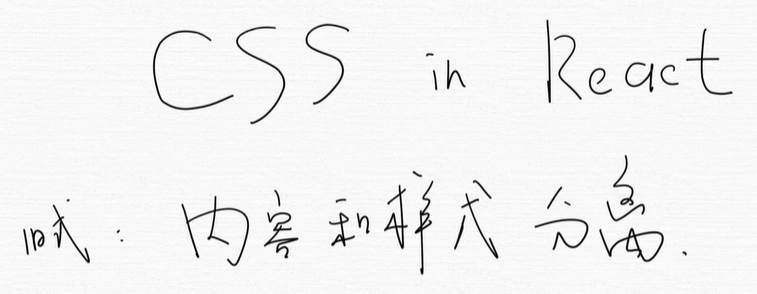 CSS in React
旧式：内容和样式分离.